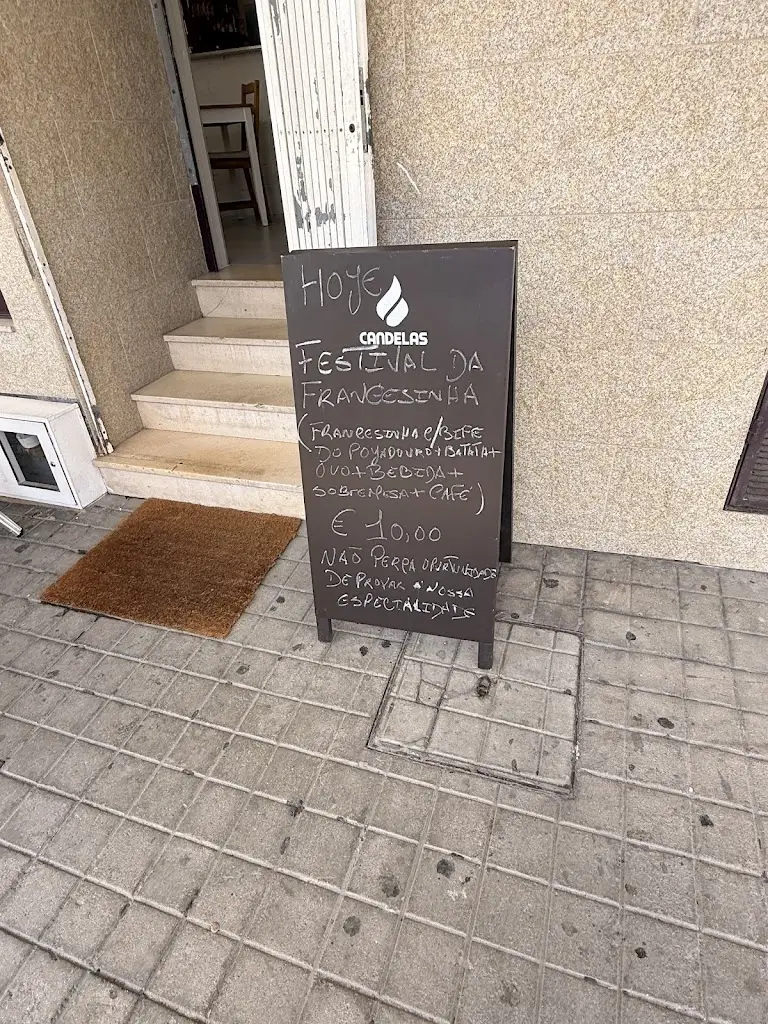 HOJE
CANDELAS
FESTIVAL DA
FRANCESINHA
(FRANCESINHA C/BIFE
DO POJADOURO+BATATA+
OVO+BEBIDA+
SOBREMESA+CAFÉ)
€ 10,00
NÃO PERCA OPORTUNIDADE
DE PROVAR A NOSSA
ESPECIALIDADE